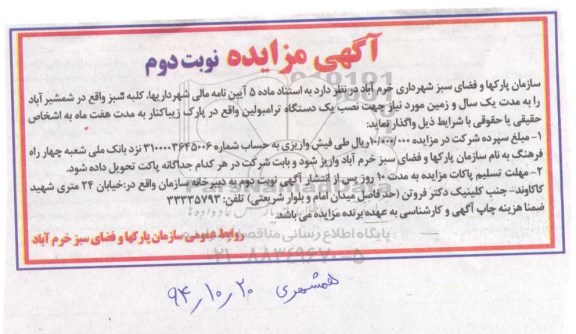 آگهی مزایده نوبت دوم
سازمان پارکها و فضای سبز شهرداری خرم آباد در نظر دارد به استناد ماده ۵ آیین نامه مالی شهرداریها، کلبه سبز واقع در شمشیر آباد
را به مدت یک سال و زمین مورد نیاز جهت نصب یک دستگاه ترامبولین واقع در پارک زیباکنار به مدت هفت ماه به اشخاص
حقیقی یا حقوقی با شرایط ذیل واگذار نماید:
۱- مبلغ سپرده شرکت در مزایده ۱۰/۰۰۰/۰۰۰ ریال طی فیش واریزی به حساب شماره ۳۱۰۰۰۰۳۶۴۵۰۰۶ نزد بانک ملی شعبه چهار راه
فرهنگ به نام سازمان پارکها و فضای سبز خرم آباد واریز شود و بابت شرکت در هر کدام جداگانه پاکت تحویل داده شود.
۲- مهلت تسلیم پاکات مزایده به مدت ۱۰ روز پس از انتشار آگهی نوبت دوم به دبیرخانه سازمان واقع در:خیابان ۲۴ متری شهید
کاکاوند- جنب کلینیک دکتر فروتن (حدفاصل میدان امام و بلوار شریعتی) تلفن: ۳۳۳۳۵۷۹۳
ضمنا هزینه چاپ آگهی و کارشناسی به عهده برنده مزایده می باشد.
پایگاه اطلاع رسانی مناقصه
روابط عمومی سازمان پارکها و فضای سبز خرم آباد
۰۲۱-۸۸۳۴۹۶۷۰-۵
همشهری ۹۴/۱۰/۲۰